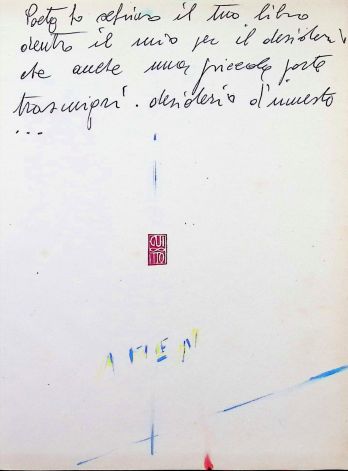 Poeta to refiuso il tuo libro
dentro il mio per il desiderio
che anche una piccola parte
trasmigri. desiderio d'innesto
...
AMEN